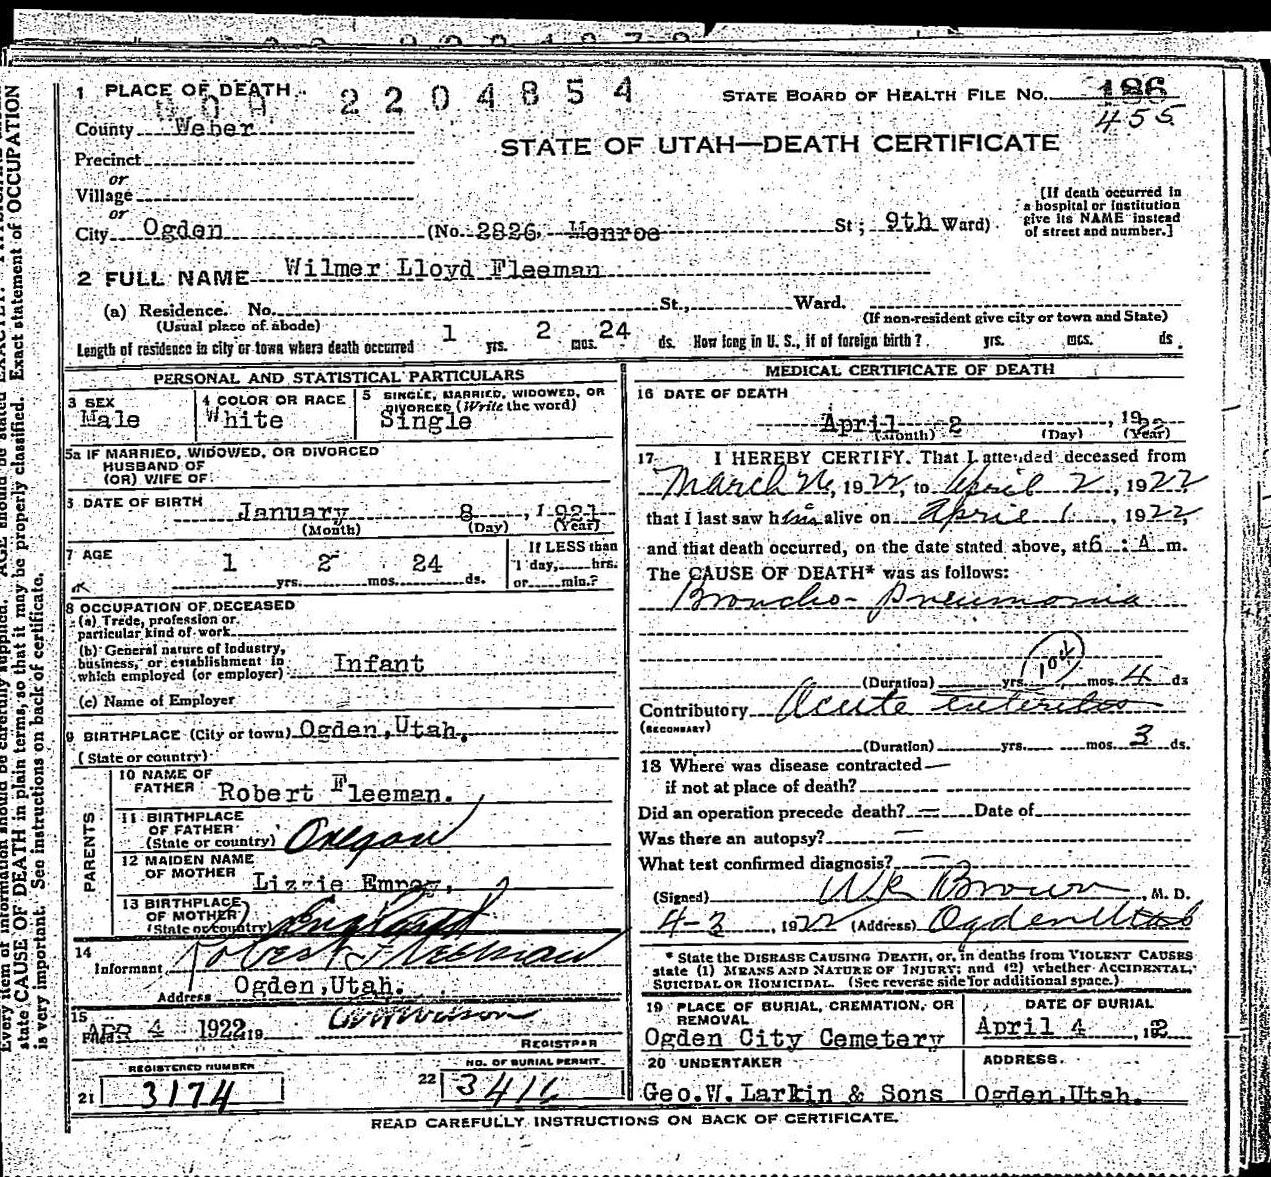 1 PLACE OF DEATH
2204854
STATE BOARD OF HEALTH FILE No. 186
455
County Weber
STATE OF UTAH—DEATH CERTIFICATE
Precinct
or
Village
or
City Ogden (No. 2826. Monroe St; 9th Ward)
[If death occurred in
a hospital or institution
give its NAME instead
of street and number.]
2 FULL NAME Wilmer Lloyd Fleeman
(a) Residence. No. St., Ward.
(Usual place of abode) (If non-resident give city or town and State)
Length of residence in city or town where death occurred 1 yrs. 2 mos. 24 ds. How long in U. S., if of foreign birth? yrs. mos. ds.
PERSONAL AND STATISTICAL PARTICULARS
3 SEX
Male
4 COLOR OR RACE
White
5 SINGLE, MARRIED, WIDOWED, OR
DIVORCED (Write the word)
Single
5a IF MARRIED, WIDOWED, OR DIVORCED
HUSBAND OF
(OR) WIFE OF
6 DATE OF BIRTH
January 8, 1921
(Month) (Day) (Year)
7 AGE
1 yrs. 2 mos. 24 ds.
If LESS than
1 day, hrs.
or min.?
8 OCCUPATION OF DECEASED
(a) Trade, profession or
particular kind of work
(b) General nature of Industry,
business, or establishment in
which employed (or employer) Infant
(c) Name of Employer
9 BIRTHPLACE (City or town) Ogden, Utah.
(State or country)
PARENTS
10 NAME OF
FATHER Robert Fleeman.
11 BIRTHPLACE
OF FATHER
(State or country) Oregon
12 MAIDEN NAME
OF MOTHER Lizzie
13 BIRTHPLACE
OF MOTHER
(State or country) England
14
Informant Robert Fleeman
Address Ogden, Utah.
15
Filed APR 4 1922 19
REGISTRAR
REGISTERED NUMBER
21 3174
NO. OF BURIAL PERMIT
22 3411
MEDICAL CERTIFICATE OF DEATH
16 DATE OF DEATH
April 2, 1922
(Month) (Day) (Year)
17 I HEREBY CERTIFY. That I attended deceased from
March 26, 1922, to April 2, 1922,
that I last saw him alive on April 1, 1922,
and that death occurred, on the date stated above, at 6 : A m.
The CAUSE OF DEATH* was as follows:
Broncho-Pneumonia
(Duration) yrs. mos. 4 ds
Contributory Acute enteritis
(SECONDARY)
(Duration) yrs. mos. 3 ds.
18 Where was disease contracted
if not at place of death?
Did an operation precede death? Date of
Was there an autopsy?
What test confirmed diagnosis?
(Signed) W R Brown, M. D.
4-3, 1922 (Address) Ogden Utah
* State the DISEASE CAUSING DEATH, or, in deaths from VIOLENT CAUSES
state (1) MEANS AND NATURE OF INJURY; and (2) whether ACCIDENTAL,
SUICIDAL OR HOMICIDAL. (See reverse side for additional space.)
19 PLACE OF BURIAL, CREMATION, OR
REMOVAL
Ogden City Cemetery
DATE OF BURIAL
April 4, 192
20 UNDERTAKER
Geo. W. Larkin & Sons
ADDRESS.
Ogden, Utah.
READ CAREFULLY INSTRUCTIONS ON BACK OF CERTIFICATE.
state CAUSE OF DEATH in plain terms, so that it may be properly classified. Exact statement of OCCUPATION
is very important. See instructions on back of certificate.